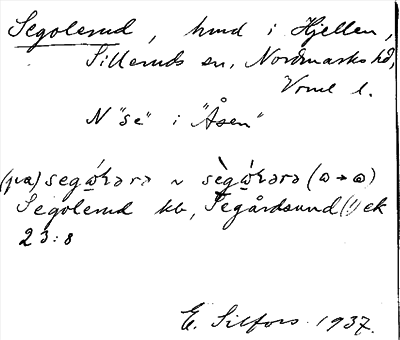 Segolerud, hmd i Hjellen,
Silleruds sn, Nordmarks hd,
Vrml l.
N "Se" i "Åsen"
(på) segώkərə ~ sègώkərə (ω → ɷ)
Segolerud kb, Segårdsund (!) ek
23:8
E. Silfors 1937.